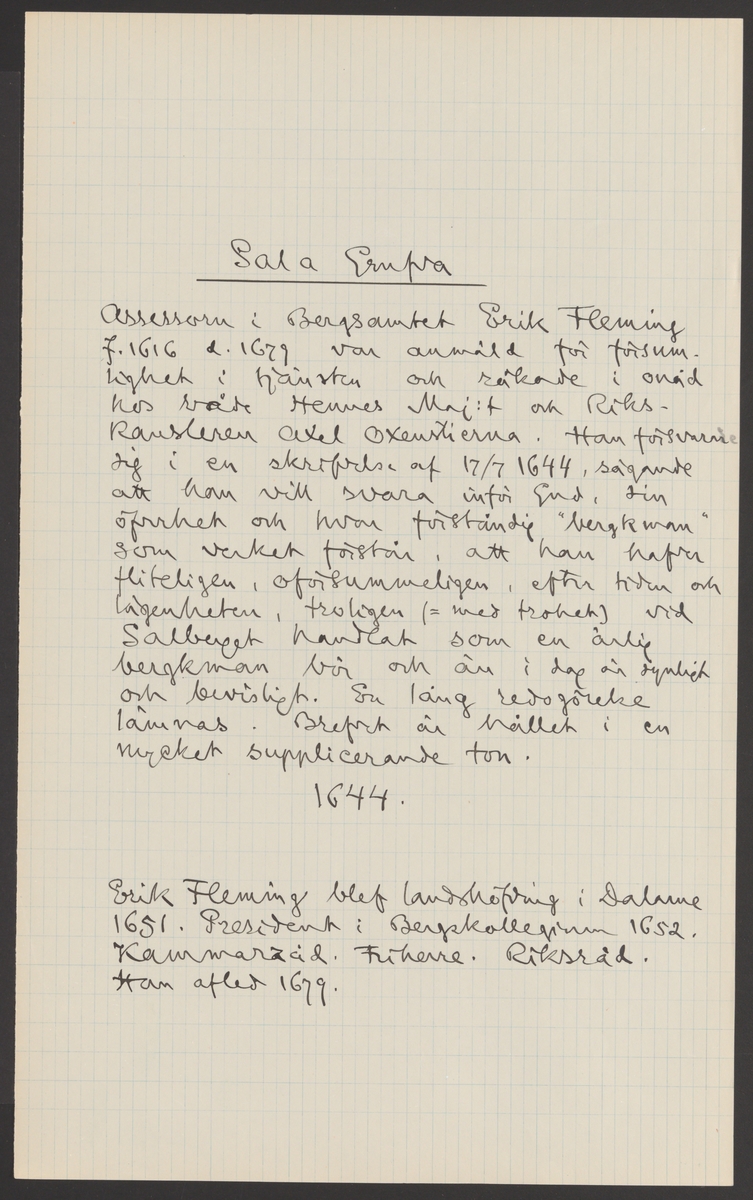 Sala Grufva
Assessorn i Bergsamtet Erik Fleming
f. 1616 d. 1679 var anmäld för försum-
lighet i tjänsten och råkade i onåd
hos både Hennes Maj:t och Riks-
Kansleren Axel Oxenstierna. Han försvarade
sig i en skrifvelse af 17/7 1644, sägande
att han vill svara inför Gud, sin
öfverhet och hvar förståndig "bergkman"
som verket förstår, att han hafver
fliteligen, oförsummeligen, efter tiden och
lägenheten, troligen (= med trohet) vid
Salberget handlat som en ärlig
bergkman bör och än i dag är synligt
och bevisligt. En lång redogörelse
lämnas. Brefvet är hållet i en
mycket supplicerande ton.
1644.
Erik Fleming blef landshöfding i Dalarne
1651. President i Bergskollegium 1652.
Kammarråd. Friherre. Riksråd.
Han afled 1679.